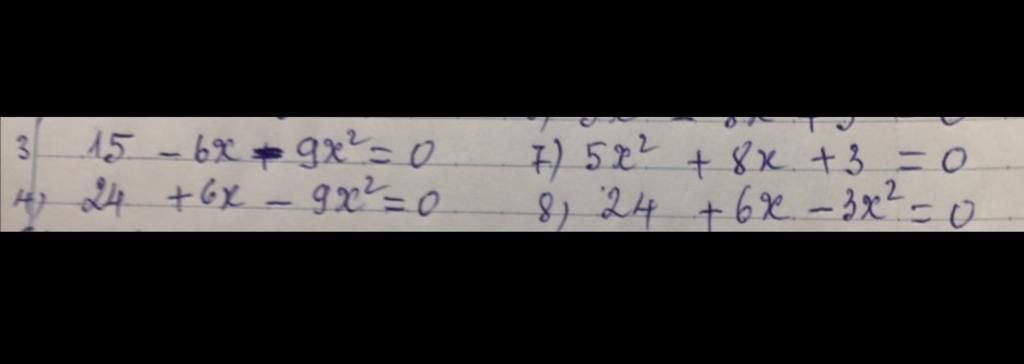 3) 15 - 6x - 9x² = 0
7) 5x² + 8x + 3 = 0
4) 24 + 6x - 9x² = 0
8) 24 + 6x - 3x² = 0